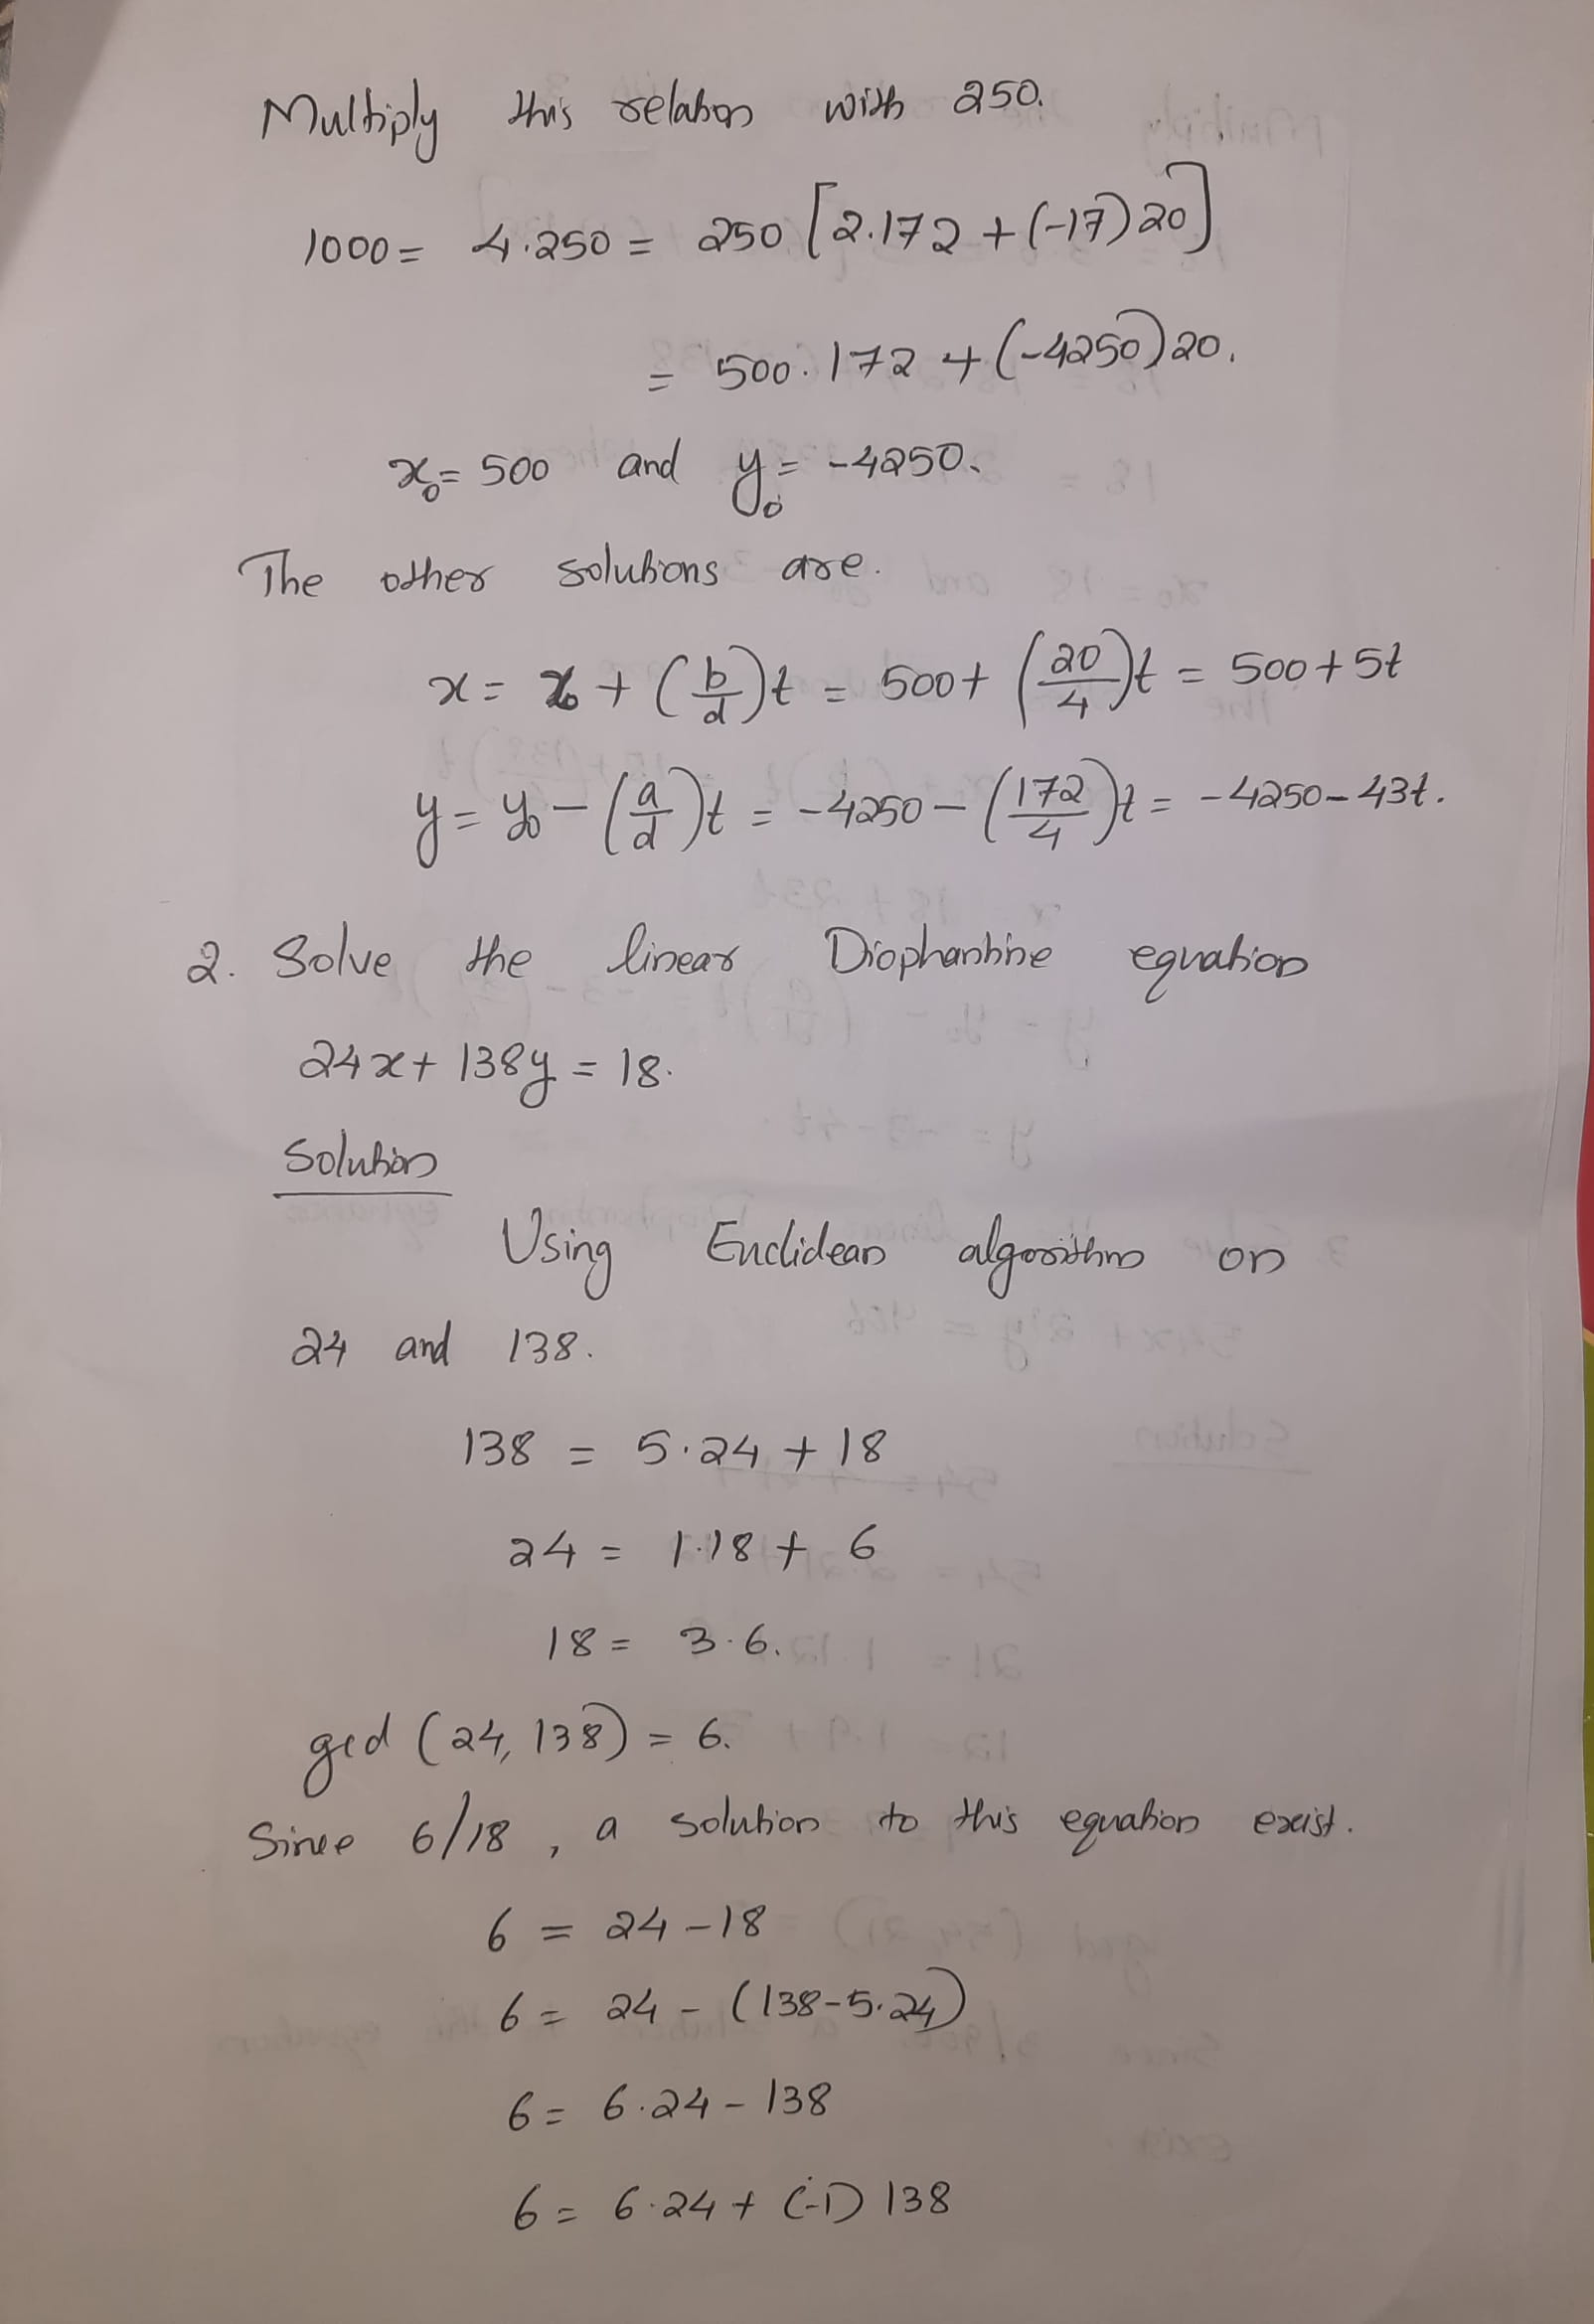 Multiply this relation with 250.
1000 = 4.250 = 250 [2.172 + (-17) 20]
= 500. 172 + (-4250) 20.
x₀ = 500 and y₀ = -4250.
The other solutions are.
x = x₀ + (b/d)t = 500 + (20/4)t = 500 + 5t
y = y₀ - (a/d)t = -4250 - (172/4)t = -4250 - 43t.
2. Solve the linear Diophantine equation
24x + 138y = 18.
Solution
Using Euclidean algorithm on
24 and 138.
138 = 5.24 + 18
24 = 1.18 + 6
18 = 3.6.
gcd (24, 138) = 6.
Since 6/18, a solution to this equation exist.
6 = 24 - 18
6 = 24 - (138 - 5.24)
6 = 6.24 - 138
6 = 6.24 + (-1) 138